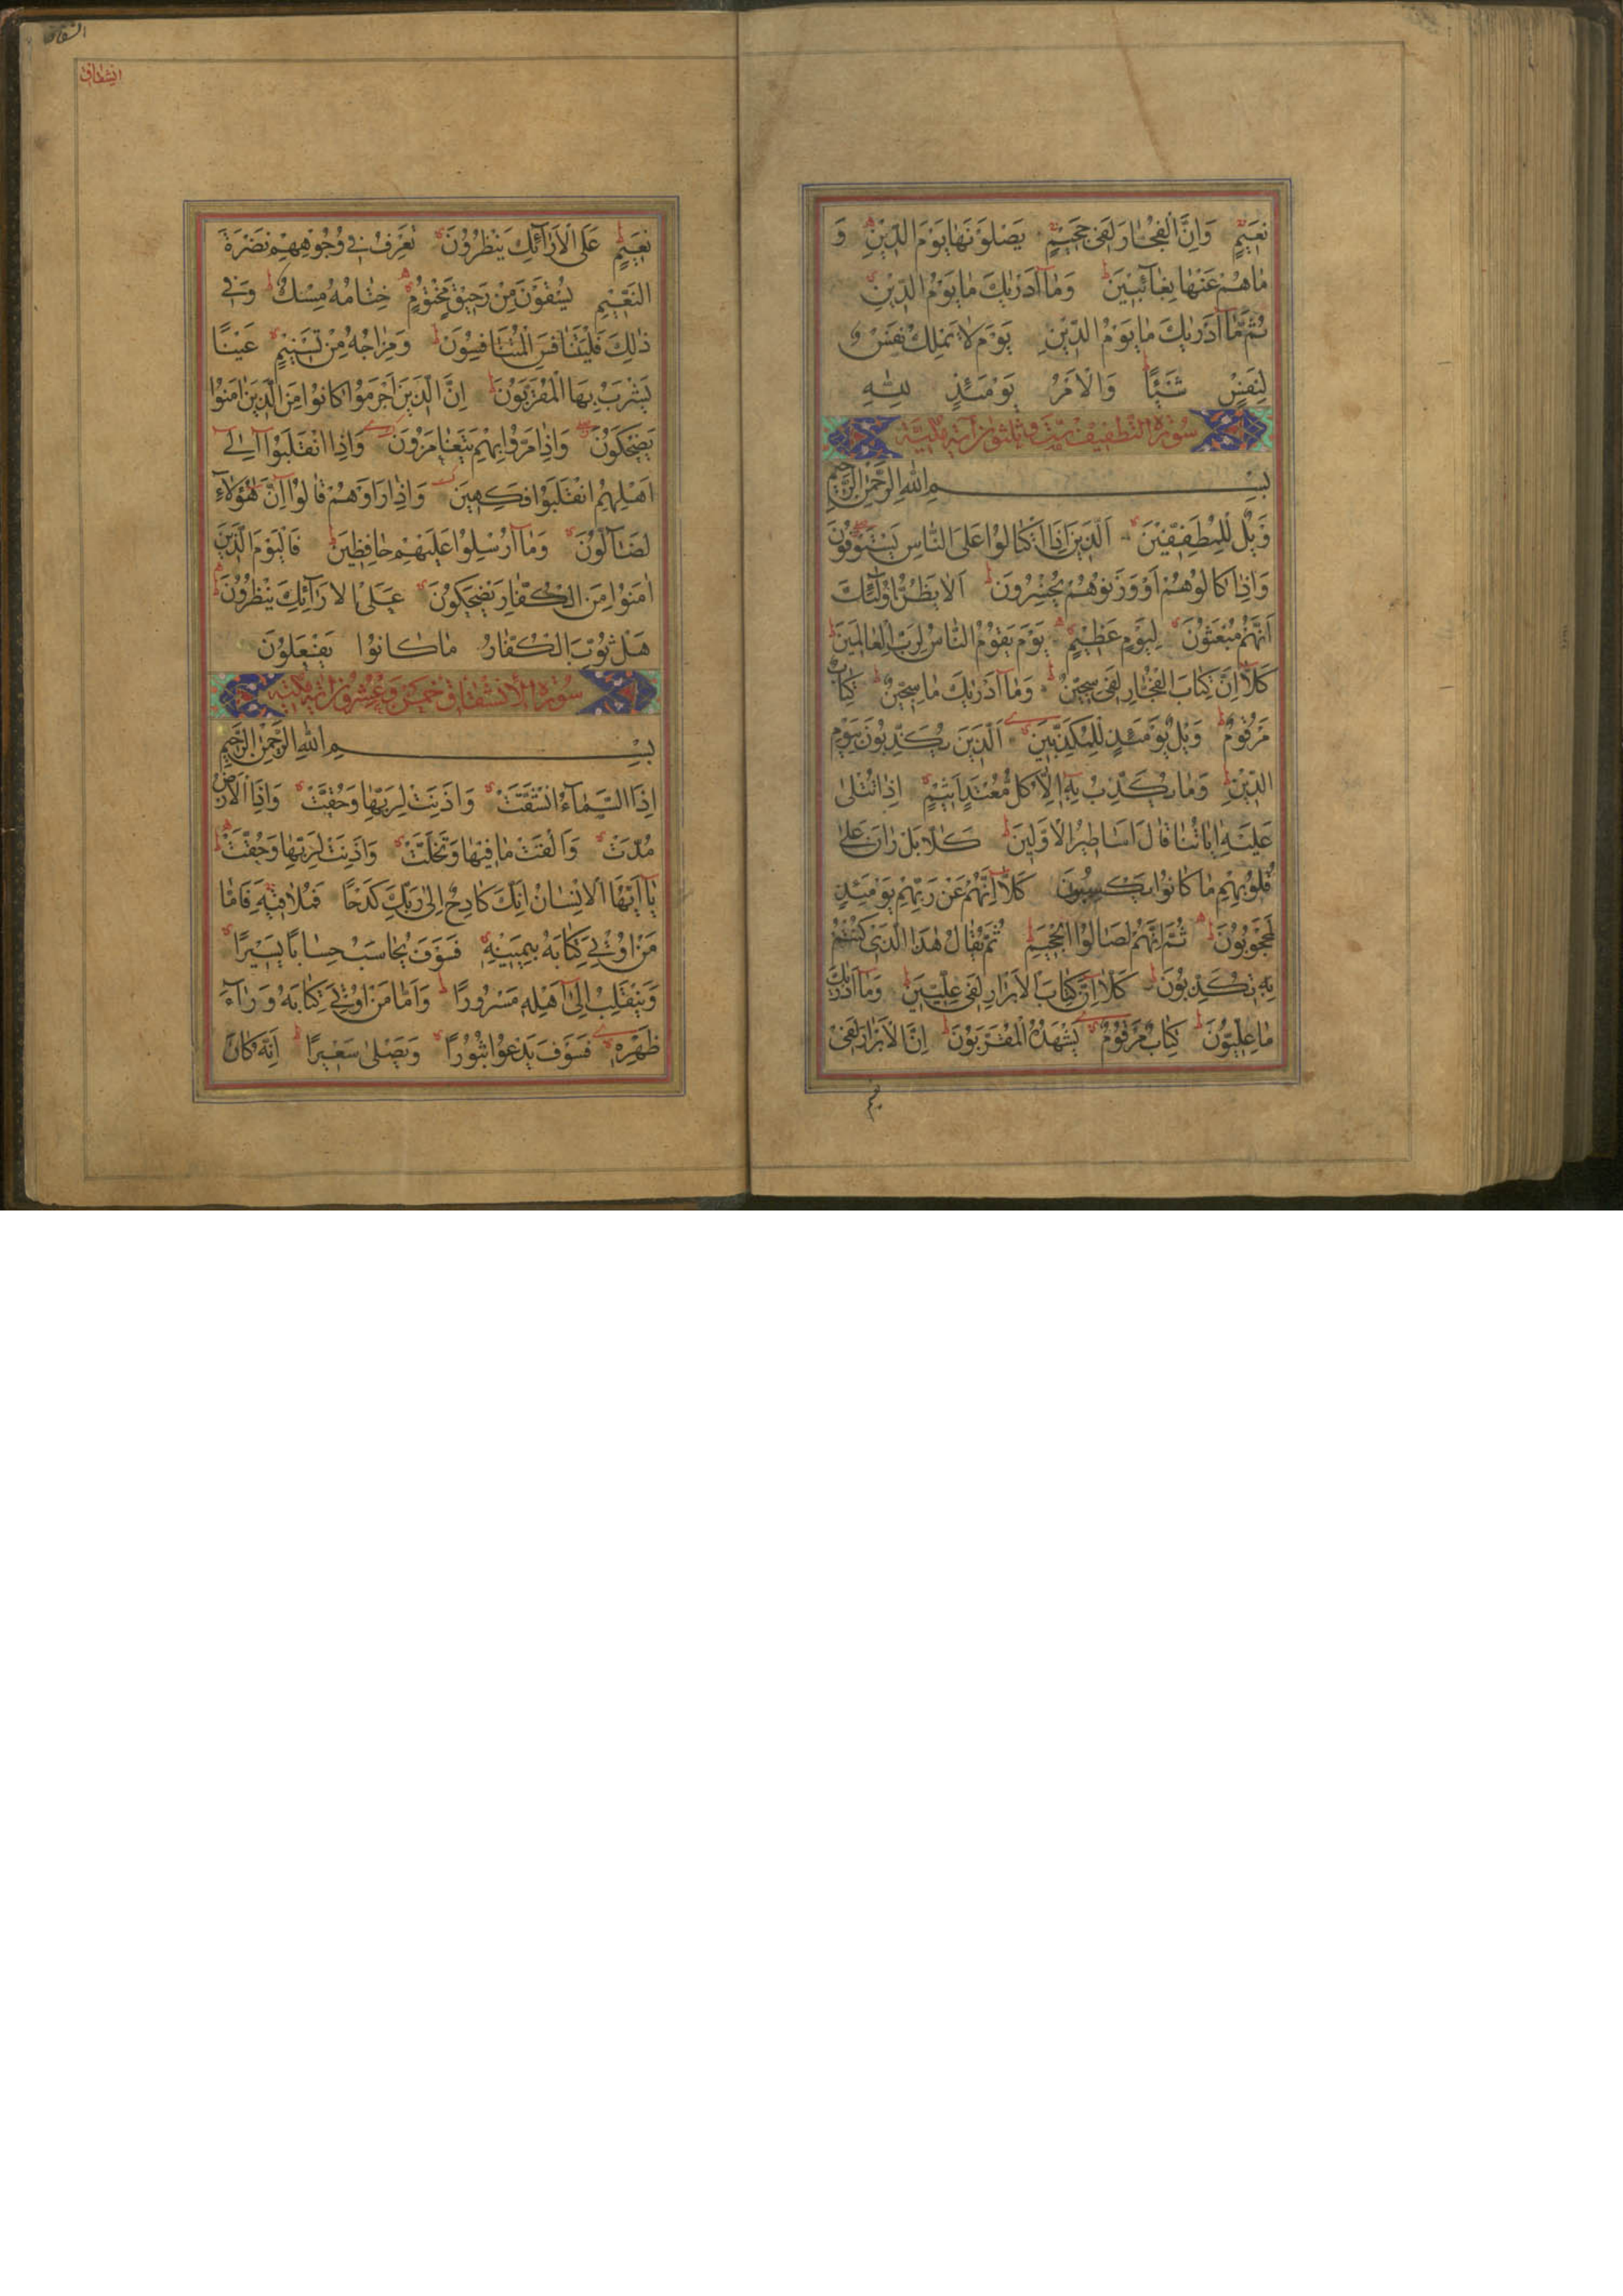 نَعِيمٍ وَاِنَّ الْفُجَّارَ لَفِي جَحِيمٍ يَصْلَوْنَهَا يَوْمَ الدِّينِ وَ
مَا هُمْ عَنْهَا بِغَآئِبِينَ وَمَآ اَدْرٰيكَ مَا يَوْمُ الدِّينِ
ثُمَّ مَآ اَدْرٰيكَ مَا يَوْمُ الدِّينِ يَوْمَ لَا تَمْلِكُ نَفْسٌ
لِنَفْسٍ شَيْئًا وَالْاَمْرُ يَوْمَئِذٍ لِلّٰهِ
سورة التطفيف ست وثلثون آية مكية
بِسْمِ اللهِ الرَّحْمٰنِ الرَّحِيمِ
وَيْلٌ لِلْمُطَفِّفِينَ اَلَّذِينَ اِذَا اكْتَالُوا عَلَى النَّاسِ يَسْتَوْفُونَ
وَاِذَا كَالُوهُمْ اَوْ وَزَنُوهُمْ يُخْسِرُونَ اَلَا يَظُنُّ اُولٰٓئِكَ
اَنَّهُمْ مَبْعُوثُونَ لِيَوْمٍ عَظِيمٍ يَوْمَ يَقُومُ النَّاسُ لِرَبِّ الْعَالَمِينَ
كَلَّآ اِنَّ كِتَابَ الْفُجَّارِ لَفِي سِجِّينٍ وَمَآ اَدْرٰيكَ مَا سِجِّينٌ كِتَابٌ
مَرْقُومٌ وَيْلٌ يَوْمَئِذٍ لِلْمُكَذِّبِينَ اَلَّذِينَ يُكَذِّبُونَ بِيَوْمِ
الدِّينِ وَمَا يُكَذِّبُ بِهٖٓ اِلَّا كُلُّ مُعْتَدٍ اَثِيمٍ اِذَا تُتْلٰى
عَلَيْهِ اٰيَاتُنَا قَالَ اَسَاطِيرُ الْاَوَّلِينَ كَلَّا بَلْ رَانَ عَلٰى
قُلُوبِهِمْ مَا كَانُوا يَكْسِبُونَ كَلَّآ اِنَّهُمْ عَنْ رَبِّهِمْ يَوْمَئِذٍ
لَمَحْجُوبُونَ ثُمَّ اِنَّهُمْ لَصَالُوا الْجَحِيمِ ثُمَّ يُقَالُ هٰذَا الَّذِي كُنْتُمْ
بِهٖ تُكَذِّبُونَ كَلَّآ اِنَّ كِتَابَ الْاَبْرَارِ لَفِي عِلِّيِّينَ وَمَآ اَدْرٰيكَ
مَا عِلِّيُّونَ كِتَابٌ مَرْقُومٌ يَشْهَدُهُ الْمُقَرَّبُونَ اِنَّ الْاَبْرَارَ لَفِي
انشقاق
نَعِيمٍ عَلَى الْاَرَآئِكِ يَنْظُرُونَ تَعْرِفُ فِي وُجُوهِهِمْ نَضْرَةَ
النَّعِيمِ يُسْقَوْنَ مِنْ رَحِيقٍ مَخْتُومٍ خِتَامُهُ مِسْكٌ وَفِي
ذٰلِكَ فَلْيَتَنَافَسِ الْمُتَنَافِسُونَ وَمِزَاجُهُ مِنْ تَسْنِيمٍ عَيْنًا
يَشْرَبُ بِهَا الْمُقَرَّبُونَ اِنَّ الَّذِينَ اَجْرَمُوا كَانُوا مِنَ الَّذِينَ اٰمَنُوا
يَضْحَكُونَ وَاِذَا مَرُّوا بِهِمْ يَتَغَامَزُونَ وَاِذَا انْقَلَبُوٓا اِلٰٓى
اَهْلِهِمُ انْقَلَبُوا فَكِهِينَ وَاِذَا رَاَوْهُمْ قَالُوٓا اِنَّ هٰٓؤُلَآءِ
لَضَآلُّونَ وَمَآ اُرْسِلُوا عَلَيْهِمْ حَافِظِينَ فَالْيَوْمَ الَّذِينَ
اٰمَنُوا مِنَ الْكُفَّارِ يَضْحَكُونَ عَلَى الْاَرَآئِكِ يَنْظُرُونَ
هَلْ ثُوِّبَ الْكُفَّارُ مَا كَانُوا يَفْعَلُونَ
سورة الانشقاق خمس وعشرون آية مكية
بِسْمِ اللهِ الرَّحْمٰنِ الرَّحِيمِ
اِذَا السَّمَآءُ انْشَقَّتْ وَاَذِنَتْ لِرَبِّهَا وَحُقَّتْ وَاِذَا الْاَرْضُ
مُدَّتْ وَاَلْقَتْ مَا فِيهَا وَتَخَلَّتْ وَاَذِنَتْ لِرَبِّهَا وَحُقَّتْ
يَآ اَيُّهَا الْاِنْسَانُ اِنَّكَ كَادِحٌ اِلٰى رَبِّكَ كَدْحًا فَمُلَاقِيهِ فَاَمَّا
مَنْ اُوتِيَ كِتَابَهُ بِيَمِينِهٖ فَسَوْفَ يُحَاسَبُ حِسَابًا يَسِيرًا
وَيَنْقَلِبُ اِلٰٓى اَهْلِهٖ مَسْرُورًا وَاَمَّا مَنْ اُوتِيَ كِتَابَهُ وَرَآءَ
ظَهْرِهٖ فَسَوْفَ يَدْعُوا ثُبُورًا وَيَصْلٰى سَعِيرًا اِنَّهُ كَانَ